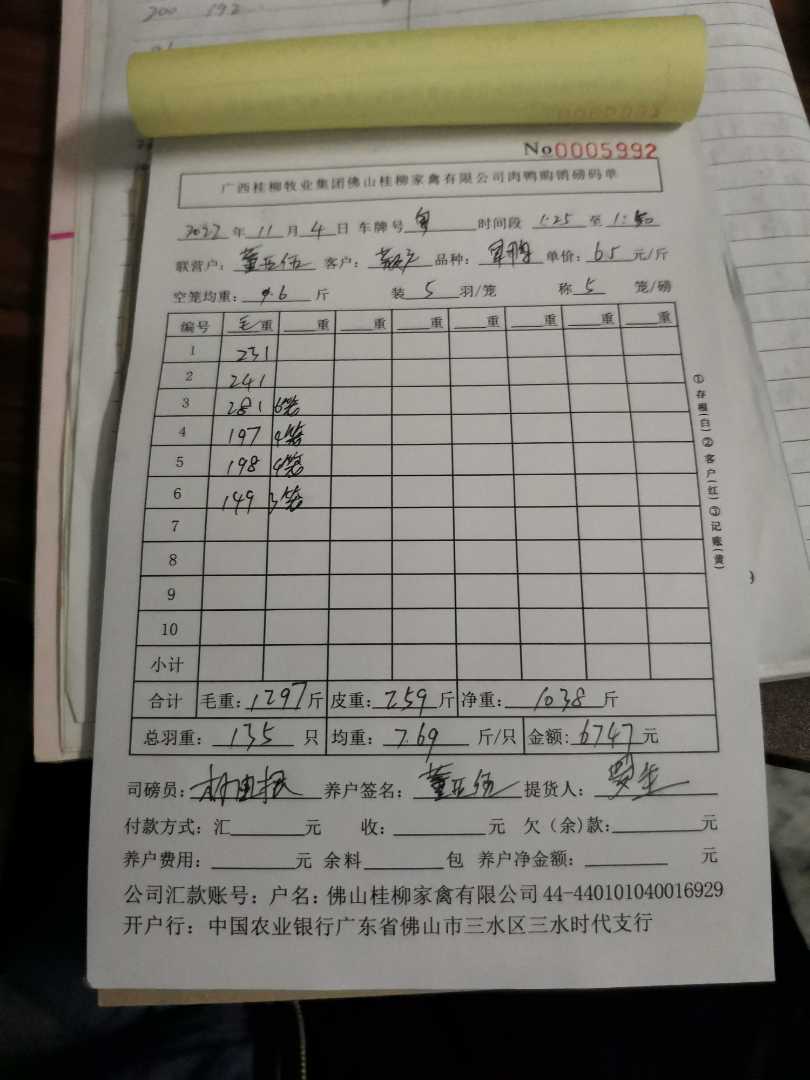 200 192
No0005992
广西桂柳牧业集团佛山桂柳家禽有限公司肉鸭购销磅码单
2022 年 11 月 4 日 车牌号 粤 时间段 1:25 至 1:50
联营户: 董正伍 客户: 品种: 单价: 6.5 元/斤
空笼均重: 9.6 斤 装 5 羽/笼 称 5 笼/磅
编号 毛重 重 重 重 重 重 重 重
1 231
2 241
3 281 6笼
4 197 4笼
5 198 4笼
6 149 3笼
7
8
9
10
小计
合计 毛重: 1297 斤 皮重: 259 斤 净重: 1038 斤
总羽重: 135 只 均重: 7.69 斤/只 金额: 6747 元
司磅员: 养户签名: 董正伍 提货人:
付款方式: 汇 元 收: 元 欠（余）款: 元
养户费用: 元 余料 包 养户净金额: 元
公司汇款账号: 户名: 佛山桂柳家禽有限公司 44-440101040016929
开户行: 中国农业银行广东省佛山市三水区三水时代支行
①存根(白)②客户(红)③记账(黄)